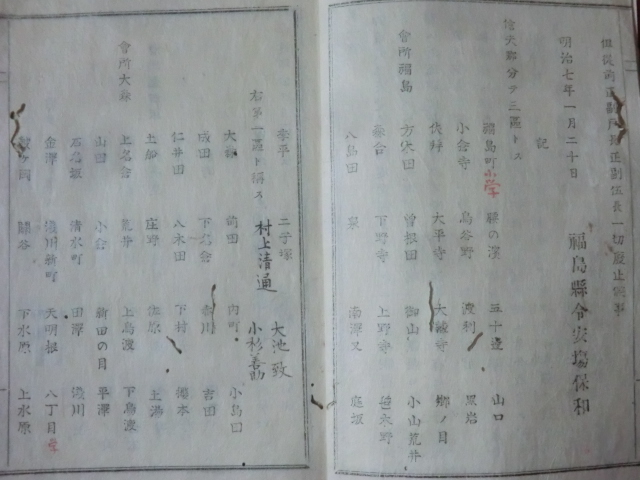 但従前正副戸長正副伍長一切廃止候事
明治七年一月二十日
福島縣令安場保和
記
信夫郡分テ三區トス
福島町 小學 腰の濱 五十邊 山口
小倉寺 鳥谷野 渡利 黒岩
伏拝 太平寺 大森寺 郷ノ目
會所福島
方木田 曾根田 御山 小山荒井
森合 下野寺 上野寺 笹木野
八島田 泉 南澤又 庭坂
李平 二子塚
右第一區ト稱ス 村上清通 大池致
小杉善助
會所大森
大森 前田 内町 小島田
成田 下名倉 赤川 吉田
仁井田 八木田 下村 櫻本
土船 庄野 佐原 土湯
上名倉 荒井 上鳥渡 下鳥渡
山田 小倉 新田の目 平澤
石名坂 清水町 田澤 淺川
金澤 淺川新町 天明根 八丁目 學
關谷 下水原 上水原